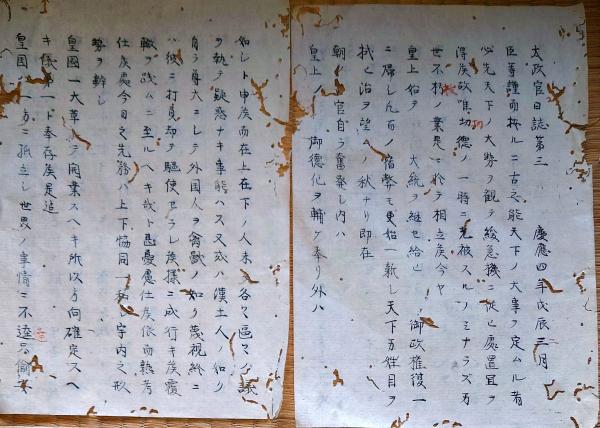 太政官日誌第三 慶應四年戊辰二月
臣等謹而按ルニ古之能天下ノ大事ヲ定ムル者
必先天下ノ大勢ヲ観テ緩急機ニ從ヒ處置宜ヲ
得矦故唯功德ノ一時ニ光被スルノミナラズ万
世不朽ノ業是ニ於テ相立矦今ヤ
皇上始テ 大統ヲ継セ給ヒ 御政権復一
ニ帰シ凡百ノ宿弊モ更始一新シ天下万姓目ヲ
拭ヒ治ヲ望ノ秋ナリ即在
朝ノ百官自ラ奮発シ内ハ
皇上ノ 御德化ヲ輔ケ奉リ外ハ
如シト申矦而在上在下ノ人未タ各々區々ノ議
ヲ執テ疑惑ナキ事能ハス又或ハ漢土人ノ如ク
自ラ尊大ニシテ外国人ヲ禽獣ノ如ク蔑視終ニ
ハ彼ニ打負却ヲ驅使セラレ矦様ニ成行キ矦覆
轍ヲ践ムニ至ルヘキ哉ト憂慮仕矦依而熟考
仕矦處今日之先務ハ上下協同一和シ宇内之形
勢ヲ辨シ
皇國一大革シテ開業スヘキ所以方向確定スヘ
キ儀第一ト奉存矦是迄
皇国ハ一方ニ孤立シ世界ノ事情ニ不達只偸安